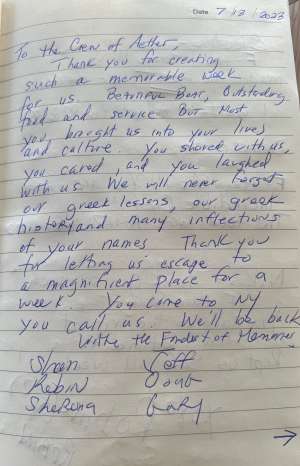 Date 7/13/2023
To the Crew of Aether,
Thank you for creating
such a memorable week
for us. Beautiful Boat, Outstanding
food and service But Most
you brought us into your lives
and culture. You shared with us,
you cared, and you laughed
with us. We will never forget
our greek lessons, our greek
history and many inflections
of your names Thank you
for letting us escape to
a magnificent place for a
week. You come to NY
you call us. We'll be back
with the Fondest of Memories
Jeff
Robin Doug
Gary
→